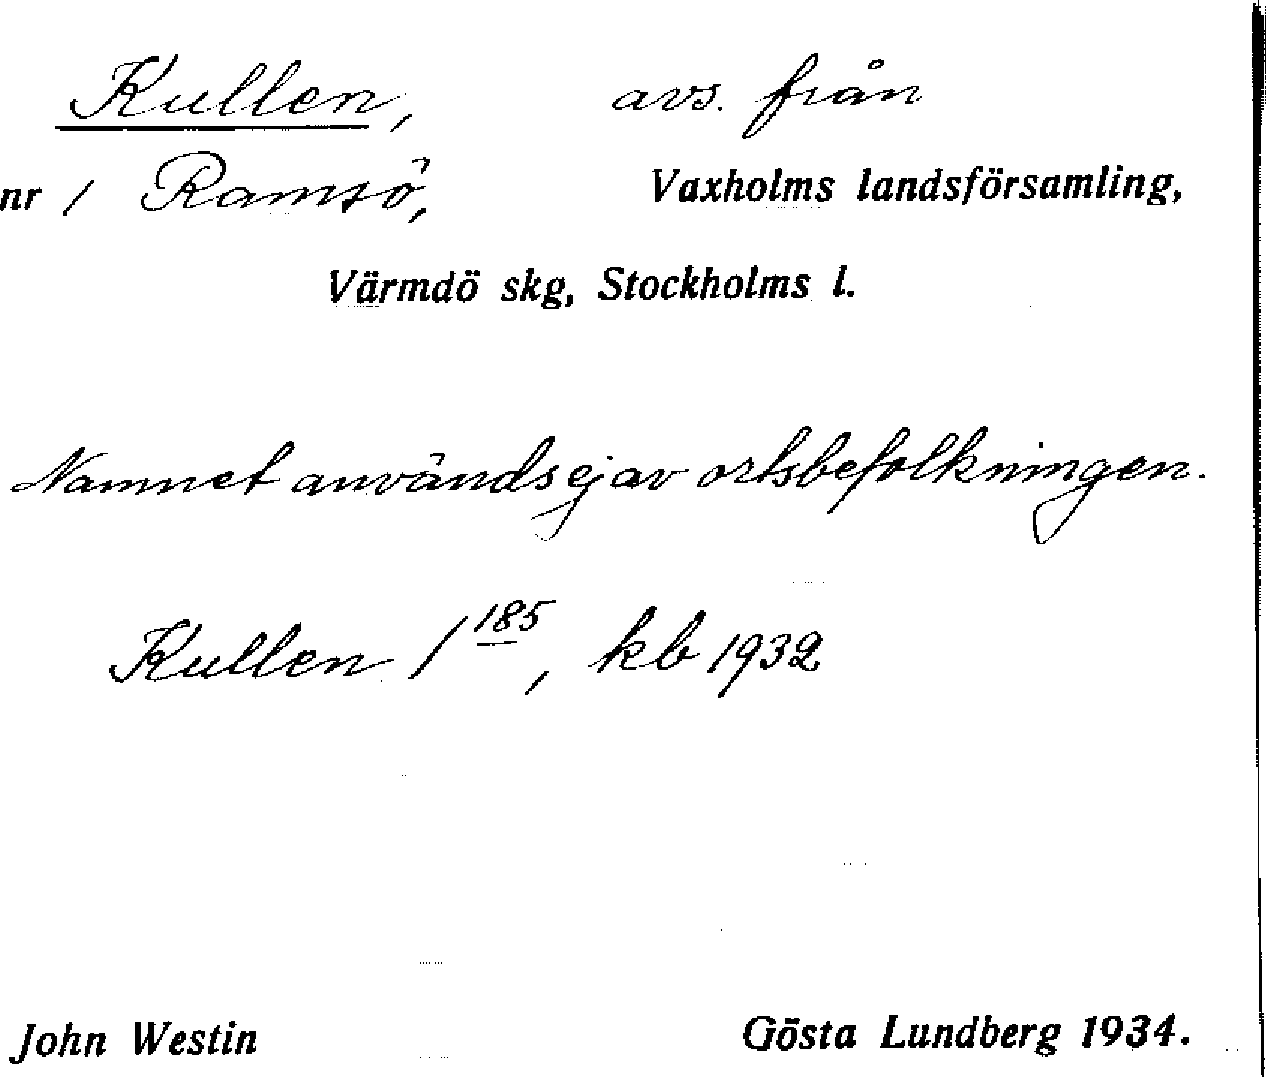 Kullen, avs. från
nr 1 Ramsö, Vaxholms landsförsamling,
Värmdö skg, Stockholms l.
Namnet används ej av ortsbefolkningen.
Kullen 1 185, kb 1932
John Westin Gösta Lundberg 1934.